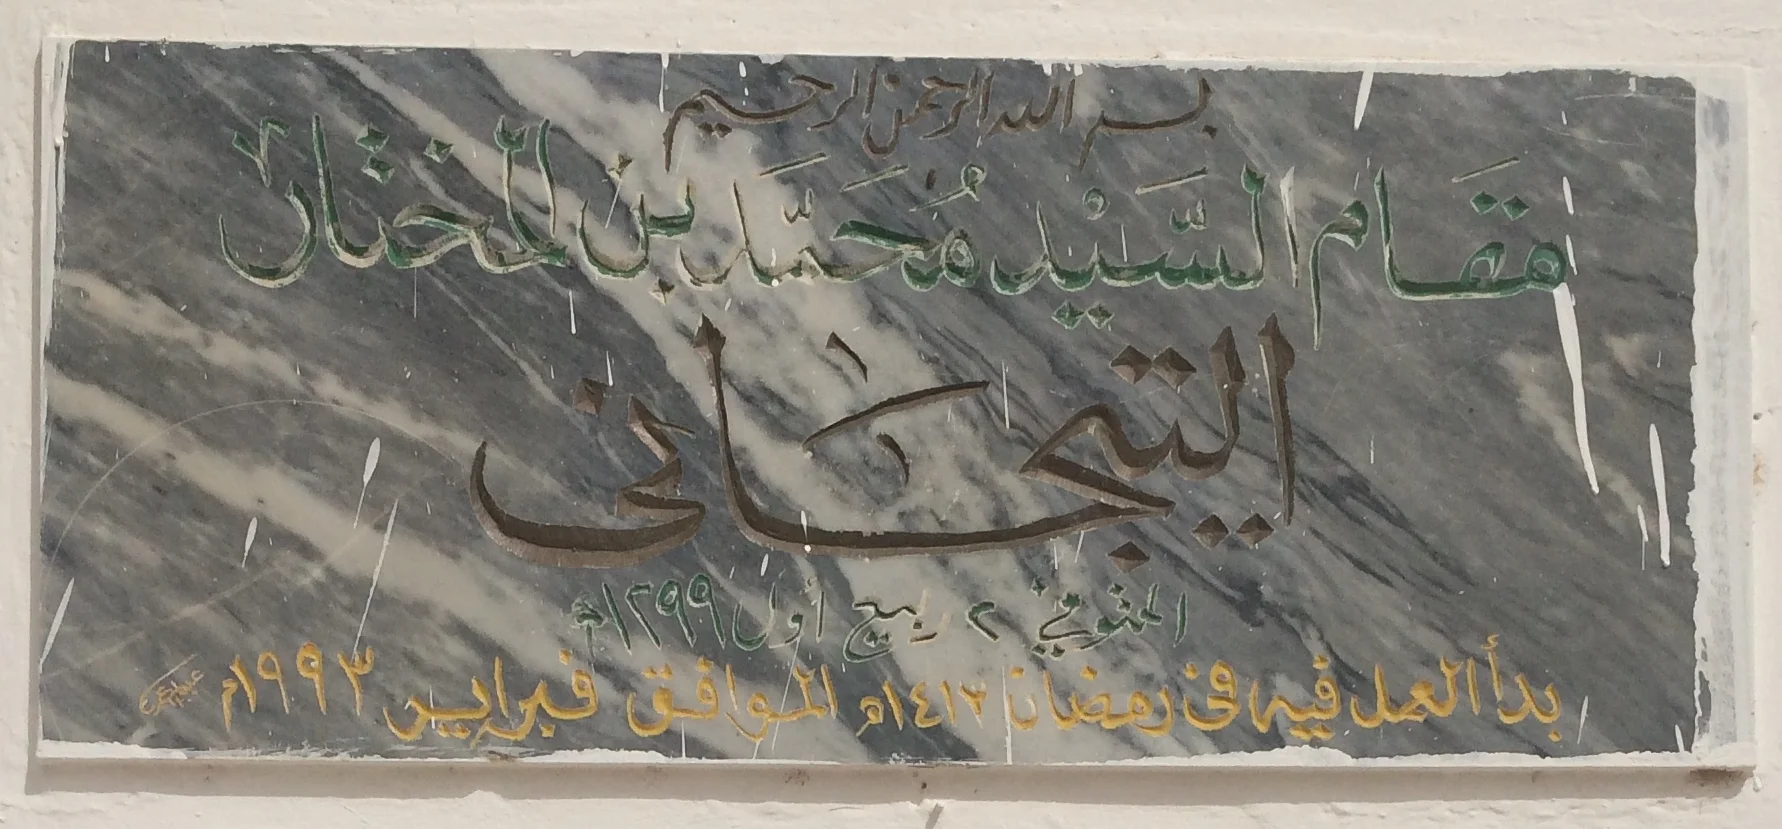 بسم الله الرحمن الرحيم
مَقَام السَّيْد مُحَمَّد بن المختار
التجانى
المتوفي ٢ ربيع أول ١٢٩٩ه
بدأ العمل فيه فى رمضان ١٤١٣ه الموافق فبراير ١٩٩٣م